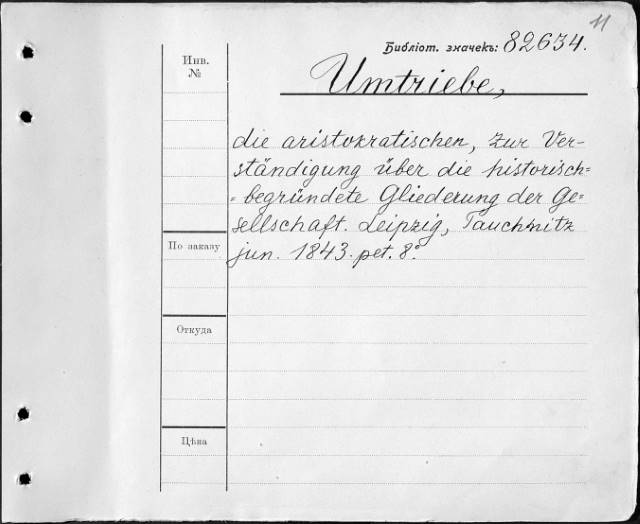 11
Библіот. значекъ: 82634.
Инв.
№
Umtriebe,
die aristokratischen, zur Ver-
ständigung über die historisch=
=begründete Gliederung der Ge=
sellschaft. Leipzig, Tauchnitz
По заказу
jun. 1843. pet. 8°
Откуда
Цѣна